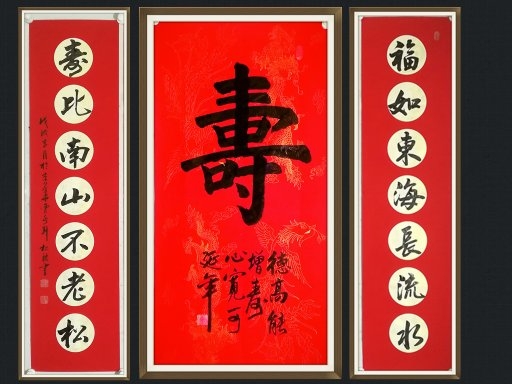 福如東海長流水
壽
德高能
增壽
心寬可
延年
寿比南山不老松